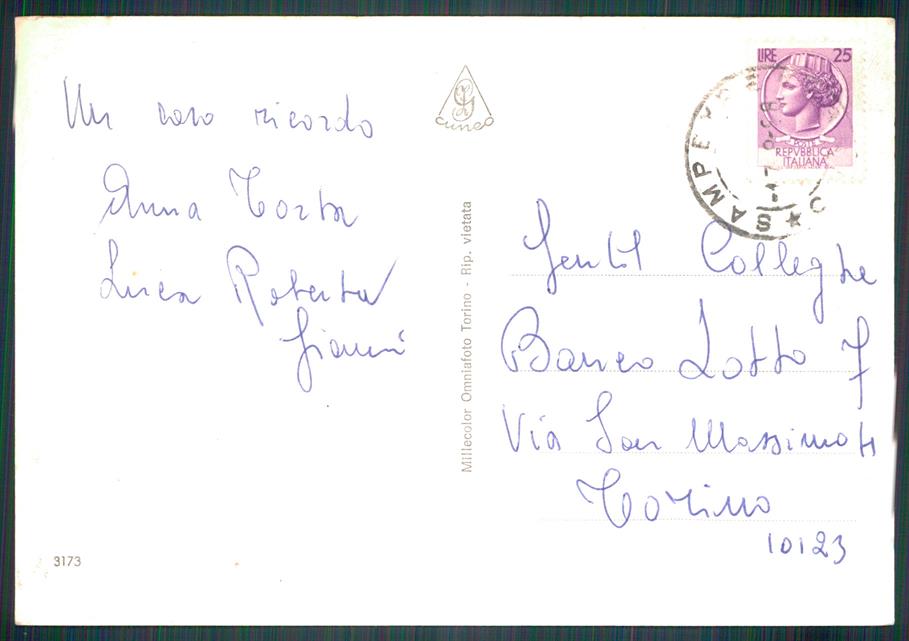 Un caro ricordo
Anna Costa
Luca Roberta
Gianni
3173
cuneo
Millecolor Omniafoto Torino - Rip. vietata
LIRE 25
POSTE
REPVBBLICA
ITALIANA
SAMPEY
Gentil Colleghe
Banco Lotto 7
Via San Massimo
Torino
10123